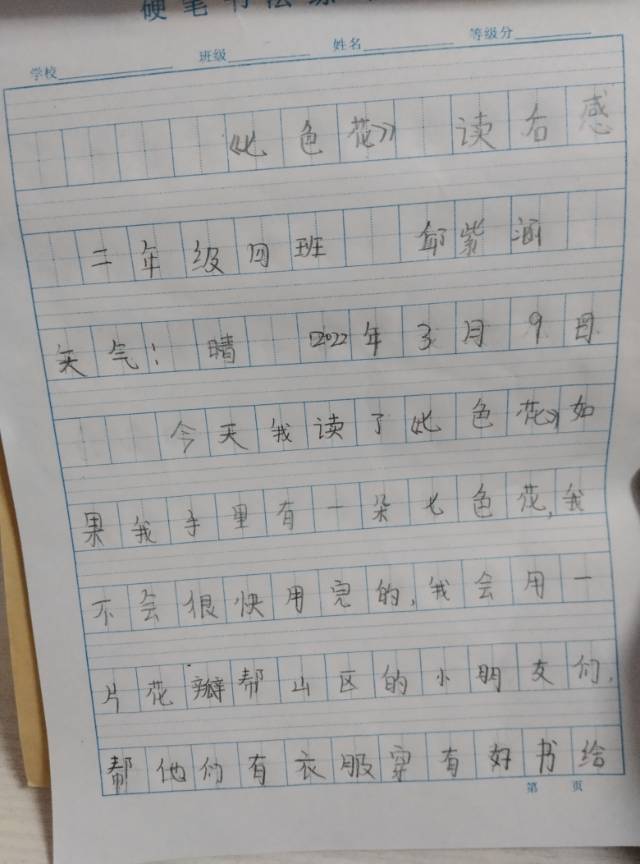 硬笔书法练
学校 班级 姓名 等级分
《七色花》 读后感
二年级四班 紫涵
天气: 晴 2022年3月9日
今天我读了《七色花》如
果我手里有一朵七色花,我
不会很快用完的,我会用一
片花瓣帮山区的小朋友们,
帮他们有衣服穿有好书给
第 页